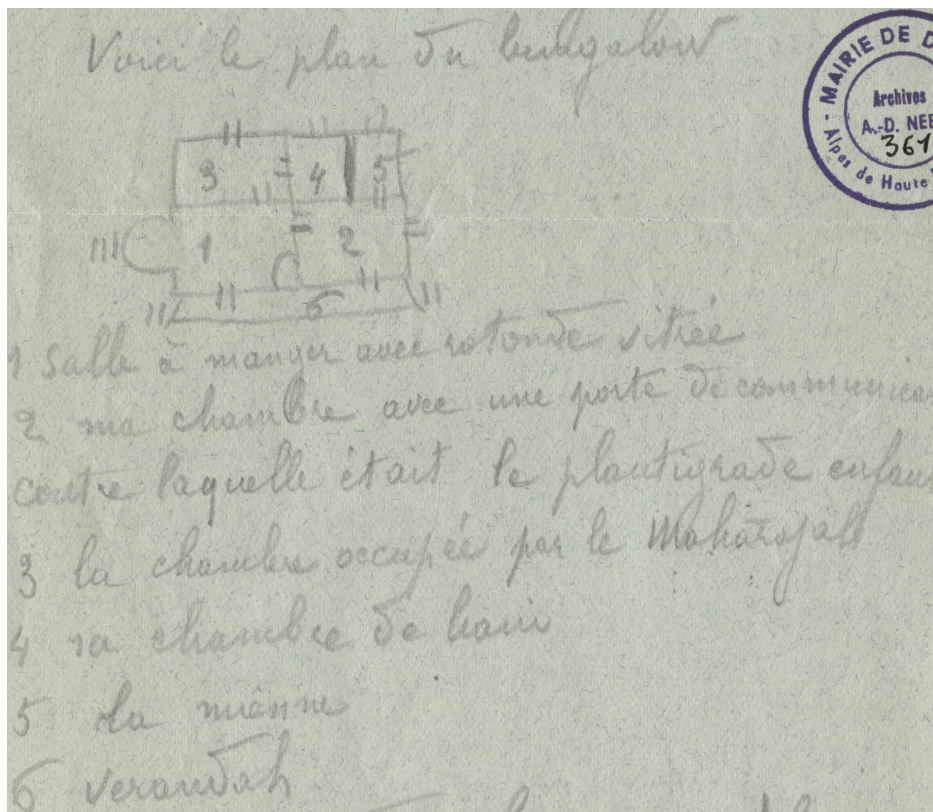 Voici le plan du bungalow
MAIRIE DE D
Archives
A.-D. NEE
361
Alpes de Haute
3 4 5
1 2
6
1 salle à manger avec rotonde vitrée
2 ma chambre avec une porte de communica
contre laquelle était le plantigrade enfan
3 la chambre occupée par le Maharajah
4 sa chambre de bain
5 la mienne
6 verandah